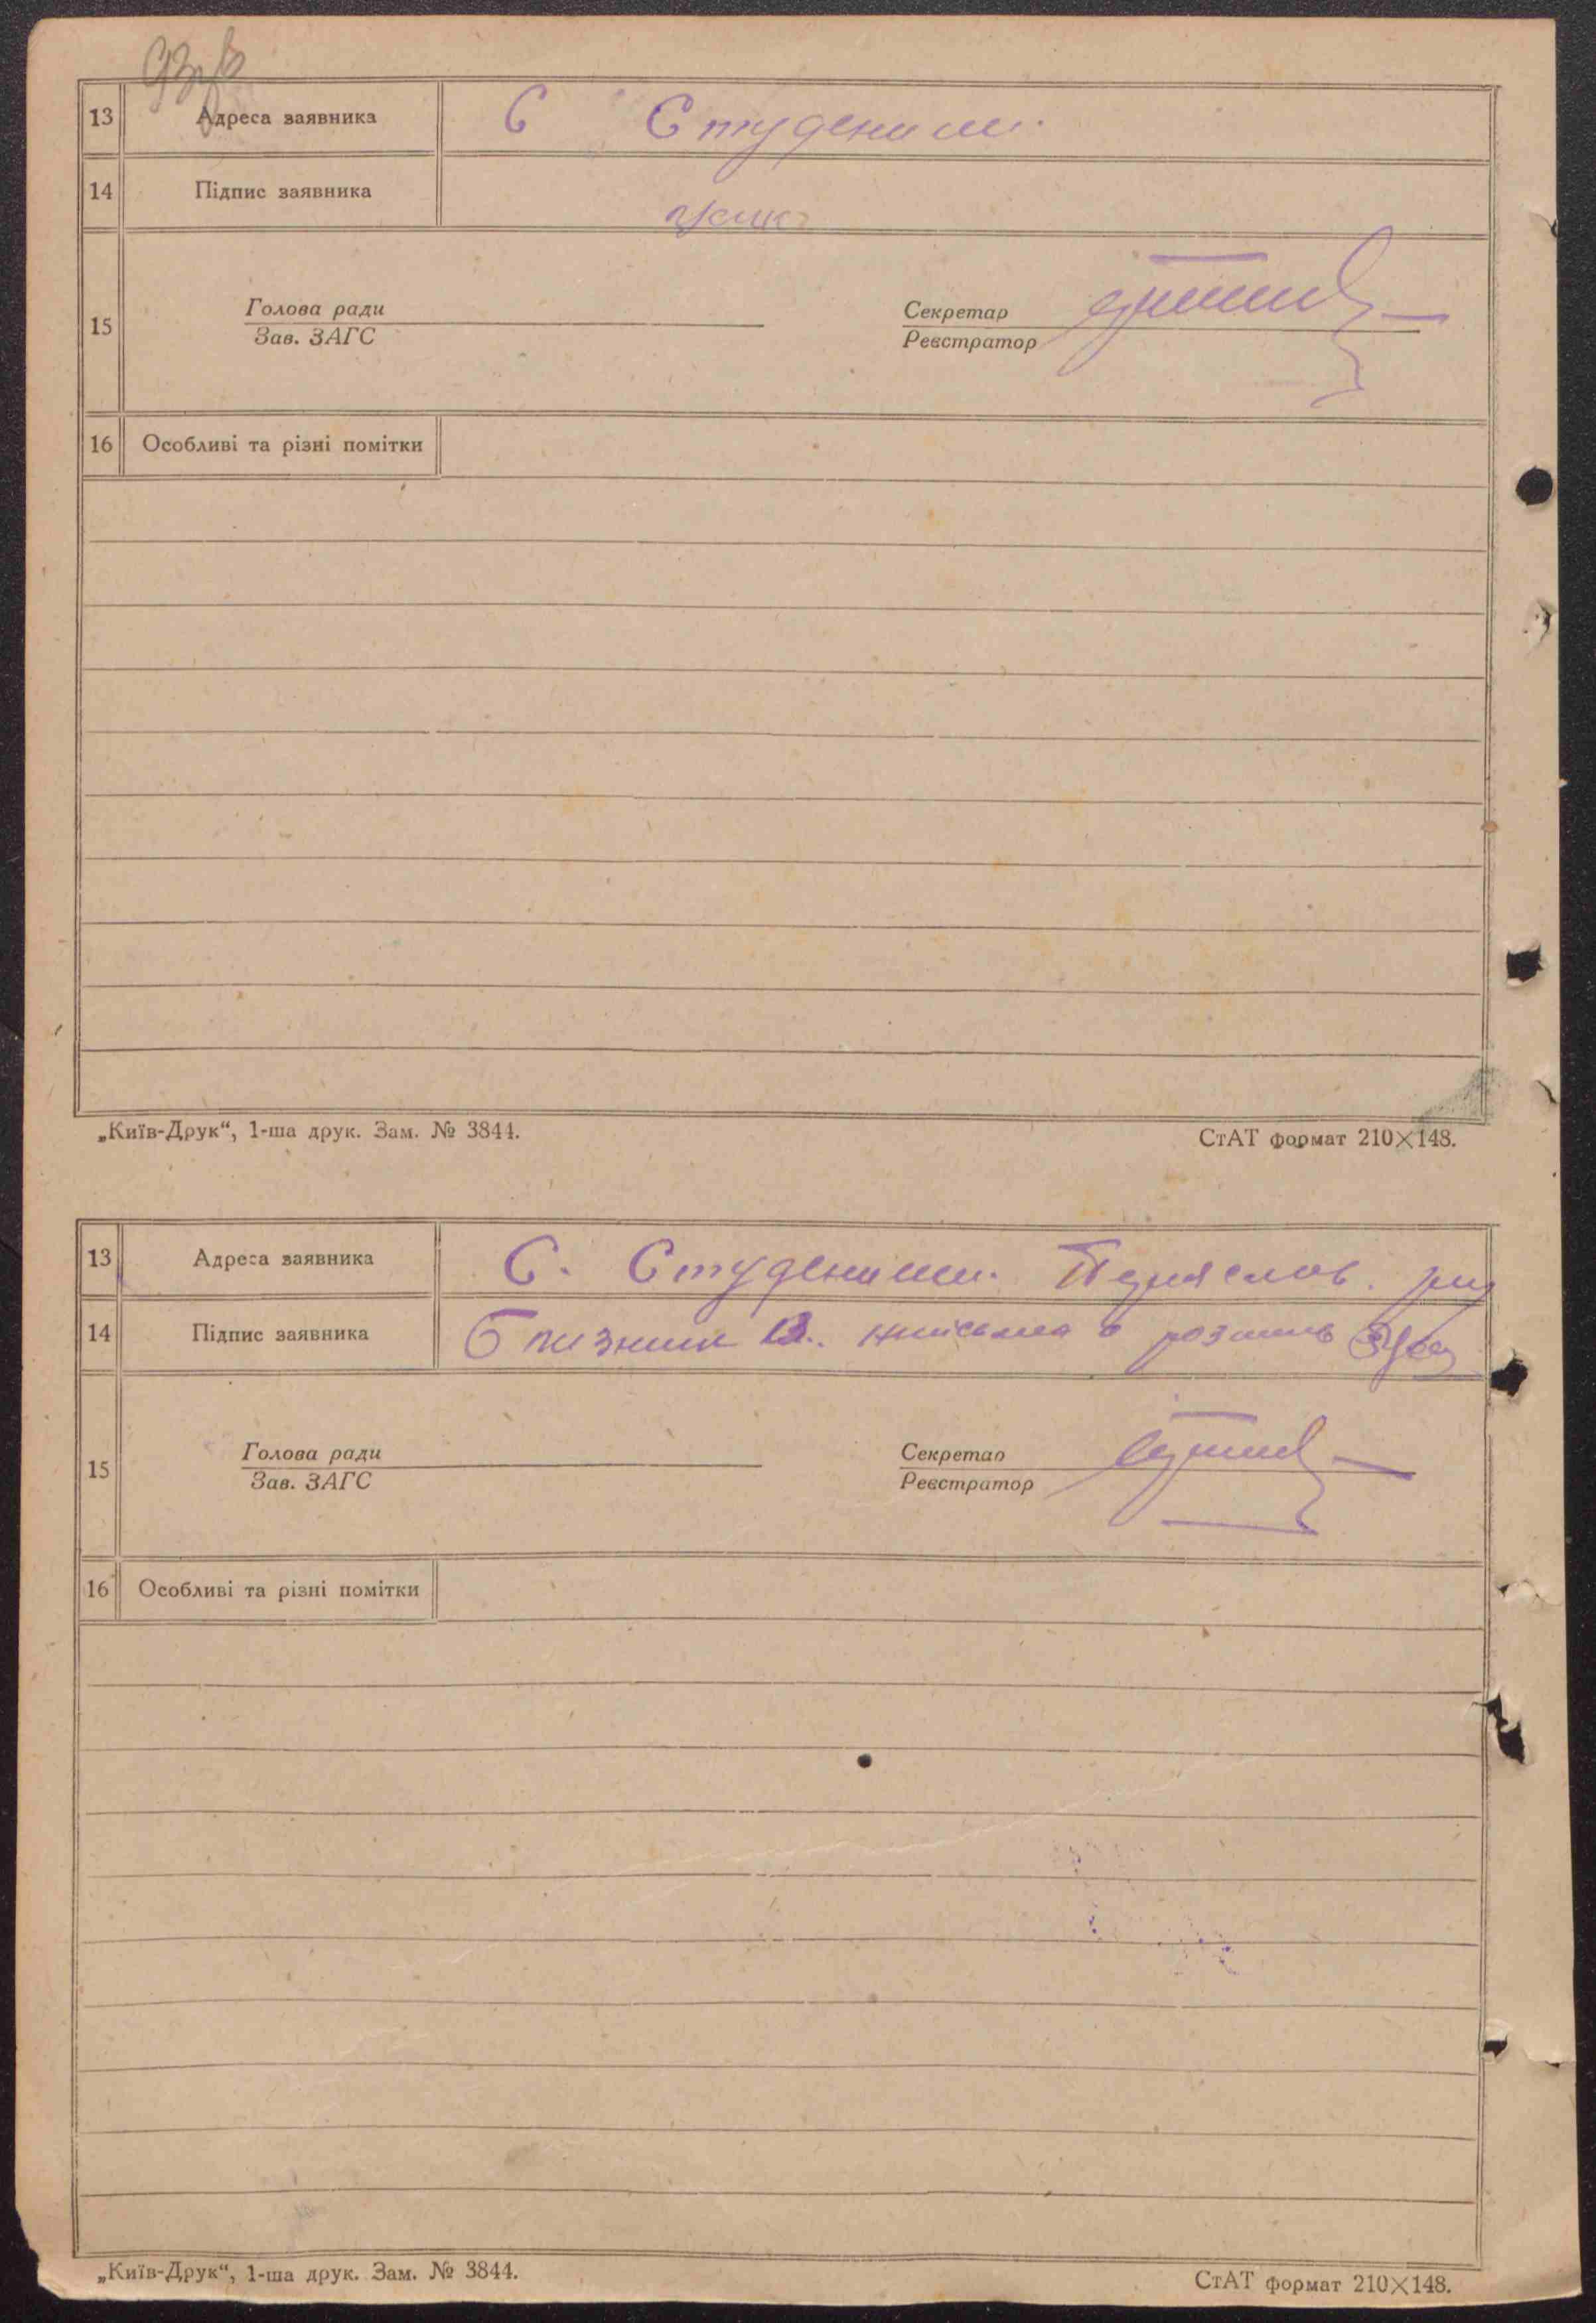 93зв
13 Адреса заявника С Студеники.
14 Підпис заявника
15 Голова ради Секретар
Зав. ЗАГС Реєстратор
16 Особливі та різні помітки
„Київ-Друк“, 1-ша друк. Зам. № 3844. СтАТ формат 210×148.
13 Адреса заявника С. Студеники.
14 Підпис заявника
15 Голова ради Секретар
Зав. ЗАГС Реєстратор
16 Особливі та різні помітки
„Київ-Друк“, 1-ша друк. Зам. № 3844. СтАТ формат 210×148.